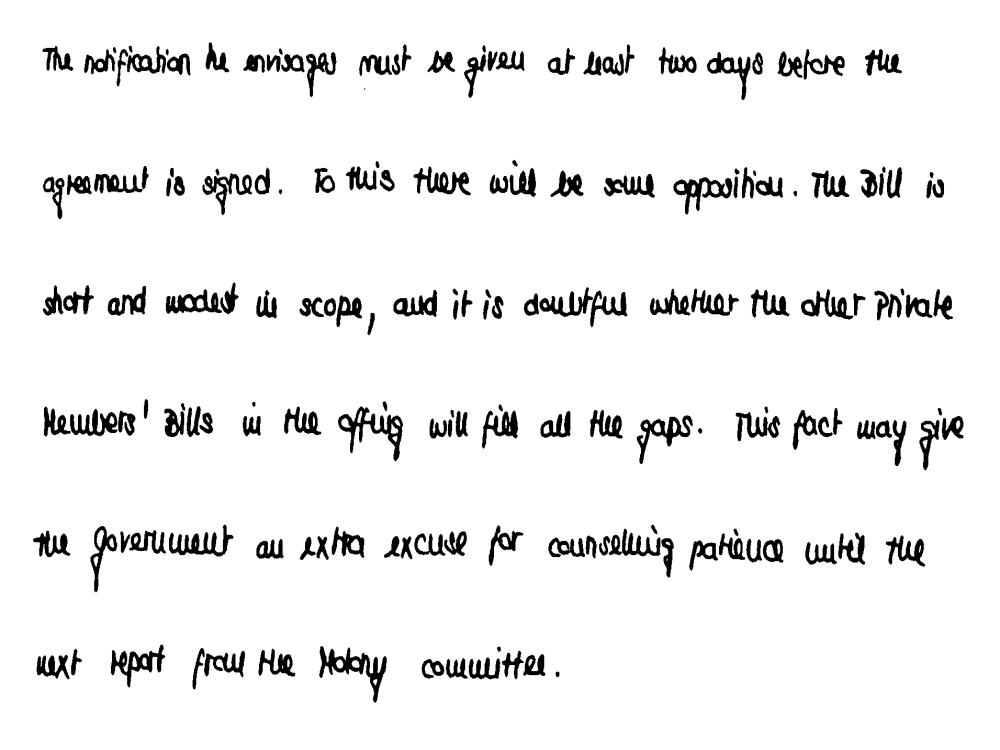 The notification he envisages must be given at least two days before the
agreement is signed. To this there will be some opposition. The Bill is
short and modest in scope, and it is doubtful whether the other Private
Members' Bills in the offing will fill all the gaps. This fact may give
the Government an extra excuse for counselling patience until the
next report from the Molony committee.